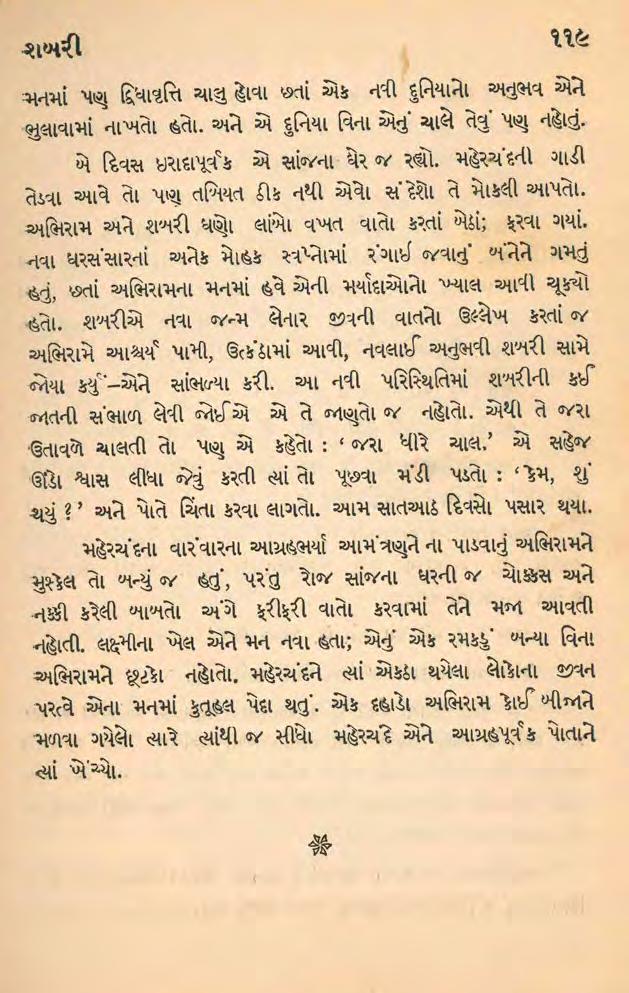 શબરી
૧૧૯
મનમાં પણ દ્વિધાવૃત્તિ ચાલુ હોવા છતાં એક નવી દુનિયાનો અનુભવ એને
ભુલાવામાં નાખતો હતો. અને એ દુનિયા વિના એનું ચાલે તેવું પણ નહોતું.
બે દિવસ ઇરાદાપૂર્વક એ સાંજના ઘેર જ રહ્યો. મહેરચંદની ગાડી
તેડવા આવે તો પણ તબિયત ઠીક નથી એવો સંદેશો તે મોકલી આપતો.
અભિરામ અને શબરી ઘણો લાંબો વખત વાતો કરતાં બેઠાં; ફરવા ગયાં.
નવા ઘરસંસારનાં અનેક મોહક સ્વપ્નોમાં રંગાઈ જવાનું બંનેને ગમતું
હતું, છતાં અભિરામના મનમાં હવે એની મર્યાદાઓનો ખ્યાલ આવી ચૂક્યો
હતો. શબરીએ નવા જન્મ લેનાર જીવની વાતનો ઉલ્લેખ કરતાં જ
અભિરામે આશ્ચર્ય પામી, ઉત્કંઠામાં આવી, નવલાઈ અનુભવી શબરી સામે
જોયા કર્યું–એને સાંભળ્યા કરી. આ નવી પરિસ્થિતિમાં શબરીની કઈ
જાતની સંભાળ લેવી જોઈએ એ તે જાણતો જ નહોતો. એથી તે જરા
ઉતાવળે ચાલતી તો પણ એ કહેતો : ‘જરા ધીરે ચાલ.’ એ સહેજ
ઊંડો શ્વાસ લીધા જેવું કરતી ત્યાં તો પૂછવા મંડી પડતો : ‘કેમ, શું
થયું ?’ અને પોતે ચિંતા કરવા લાગતો. આમ સાતઆઠ દિવસો પસાર થયા.
મહેરચંદના વારંવારના આગ્રહભર્યા આમંત્રણને ના પાડવાનું અભિરામને
મુશ્કેલ તો બન્યું જ હતું, પરંતુ રોજ સાંજના ઘરની જ ચોક્કસ અને
નક્કી કરેલી બાબતો અંગે ફરીફરી વાતો કરવામાં તેને મજા આવતી
નહોતી. લક્ષ્મીના ખેલ એને મન નવા હતા; એનું એક રમકડું બન્યા વિના
અભિરામને છૂટકો નહોતો. મહેરચંદને ત્યાં એકઠા થયેલા લોકોના જીવન
પરત્વે એના મનમાં કુતૂહલ પેદા થતું. એક દહાડો અભિરામ કોઈ બીજાને
મળવા ગયેલો ત્યારે ત્યાંથી જ સીધો મહેરચંદે એને આગ્રહપૂર્વક પોતાને
ત્યાં ખેંચ્યો.